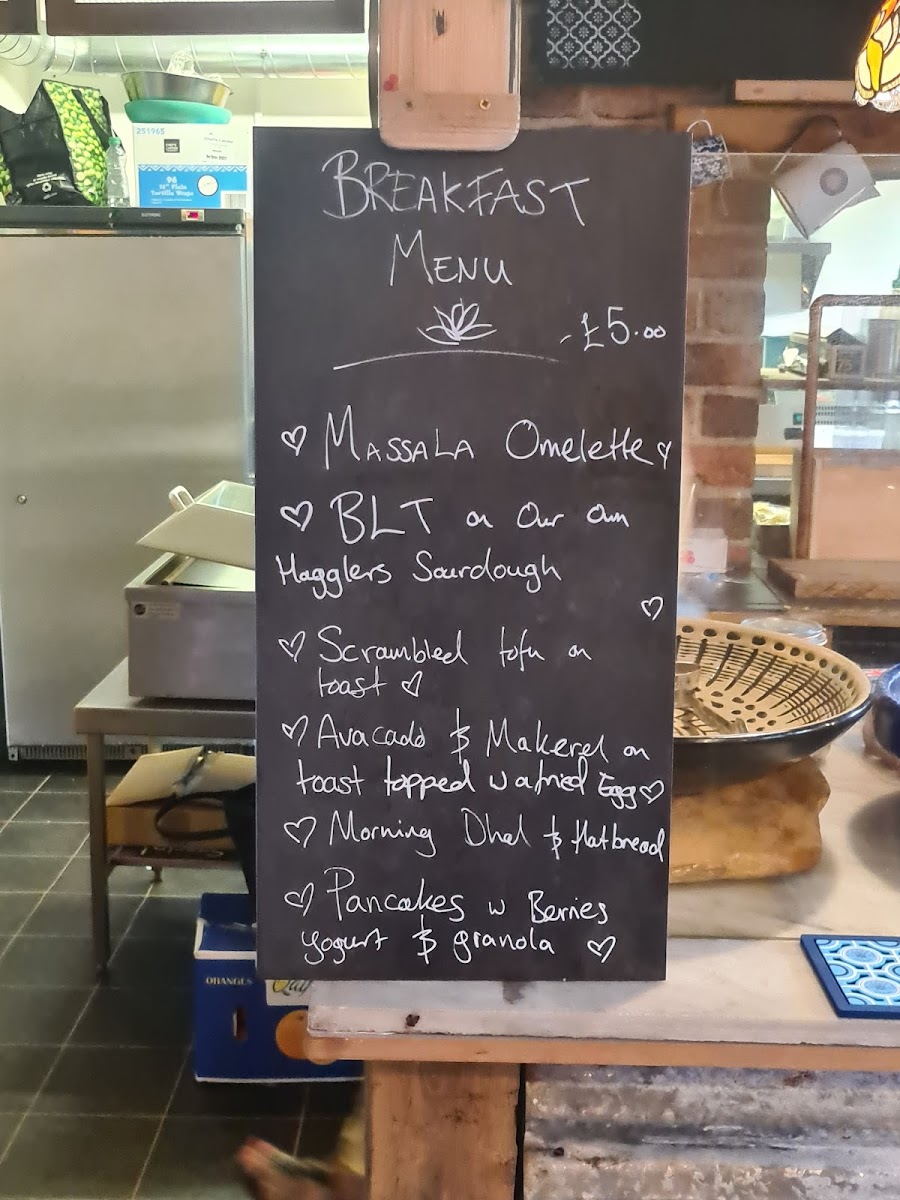 251965
96
12" Plain
Tortilla Wraps
BREAKFAST
MENU
- £5.00
MASSALA Omelette
BLT on Our Own
Hagglers Sourdough
Scrambled tofu on
toast
Avacado & Makerel on
toast topped w a fried Egg
Morning Dhal & flatbread
Pancakes w Berries
Yogurt & granola
ORANGES